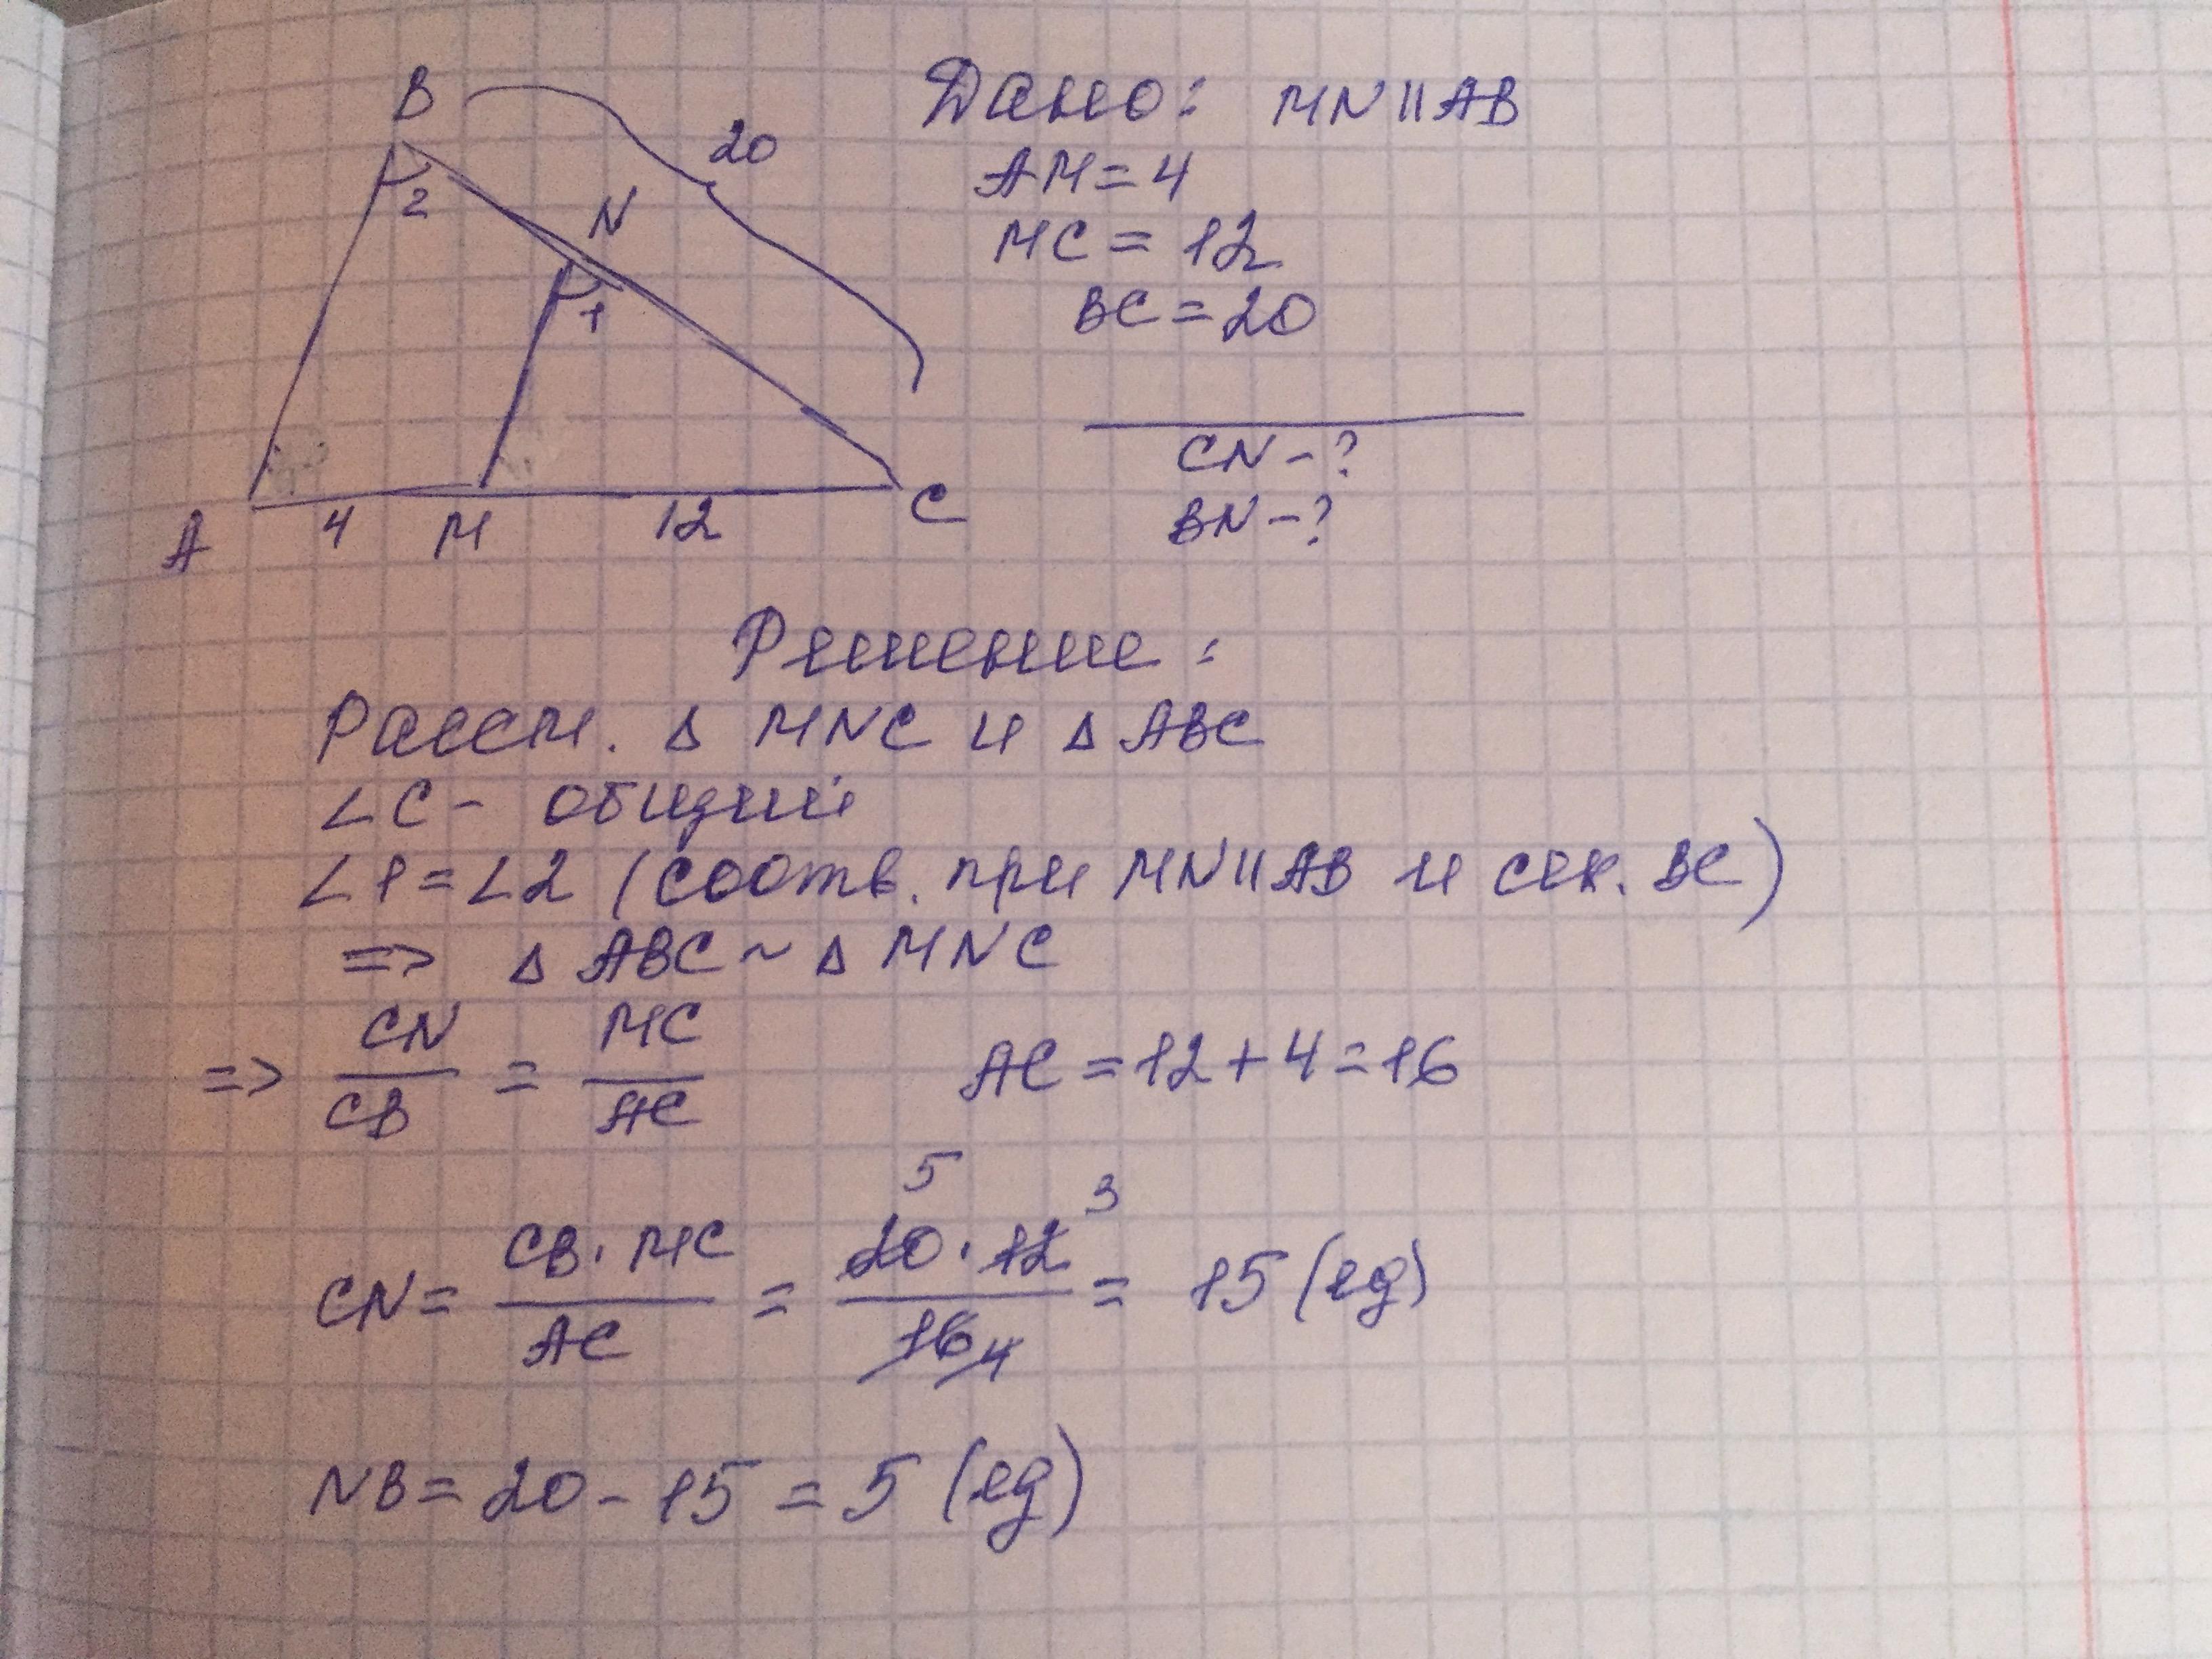 B
20
2
N
1
A
4
M
12
C
Дано: MN||AB
AM=4
MC=12
BC=20
CN-?
BN-?
Решение:
Рассм. Δ MNC и Δ ABC
∠C- общий
∠1=∠2 (соотв. при MN||AB и сек. BC)
=> Δ ABC ~ Δ MNC
=> CN/CB = MC/AC
AC=12+4=16
5 3
CN= CB·MC/AC = 20·12/16 4 = 15 (ед)
NB=20-15=5 (ед)